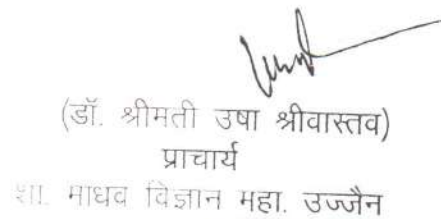 (डॉ. श्रीमती उषा श्रीवास्तव)
प्राचार्य
शा. माधव विज्ञान महा. उज्जैन